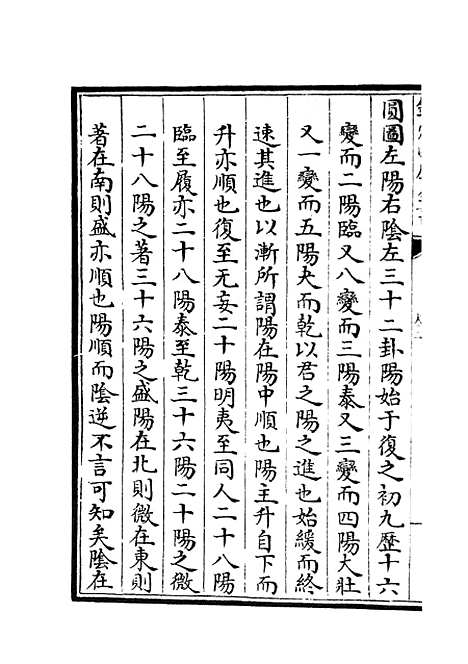 圓圖左陽右陰左三十二卦陽始于復之初九歷十六
變而二陽臨又八變而三陽泰又三變而四陽大壯
又一變而五陽夬而乾以君之陽之進也始緩而終
速其進也以漸所謂陽在陽中順也陽主升自下而
升亦順也復至无妄二十陽明夷至同人二十八陽
臨至履亦二十八陽泰至乾三十六陽二十陽之微
二十八陽之著三十六陽之盛陽在北則微在東則
著在南則盛亦順也陽順而陰逆不言可知矣陰在